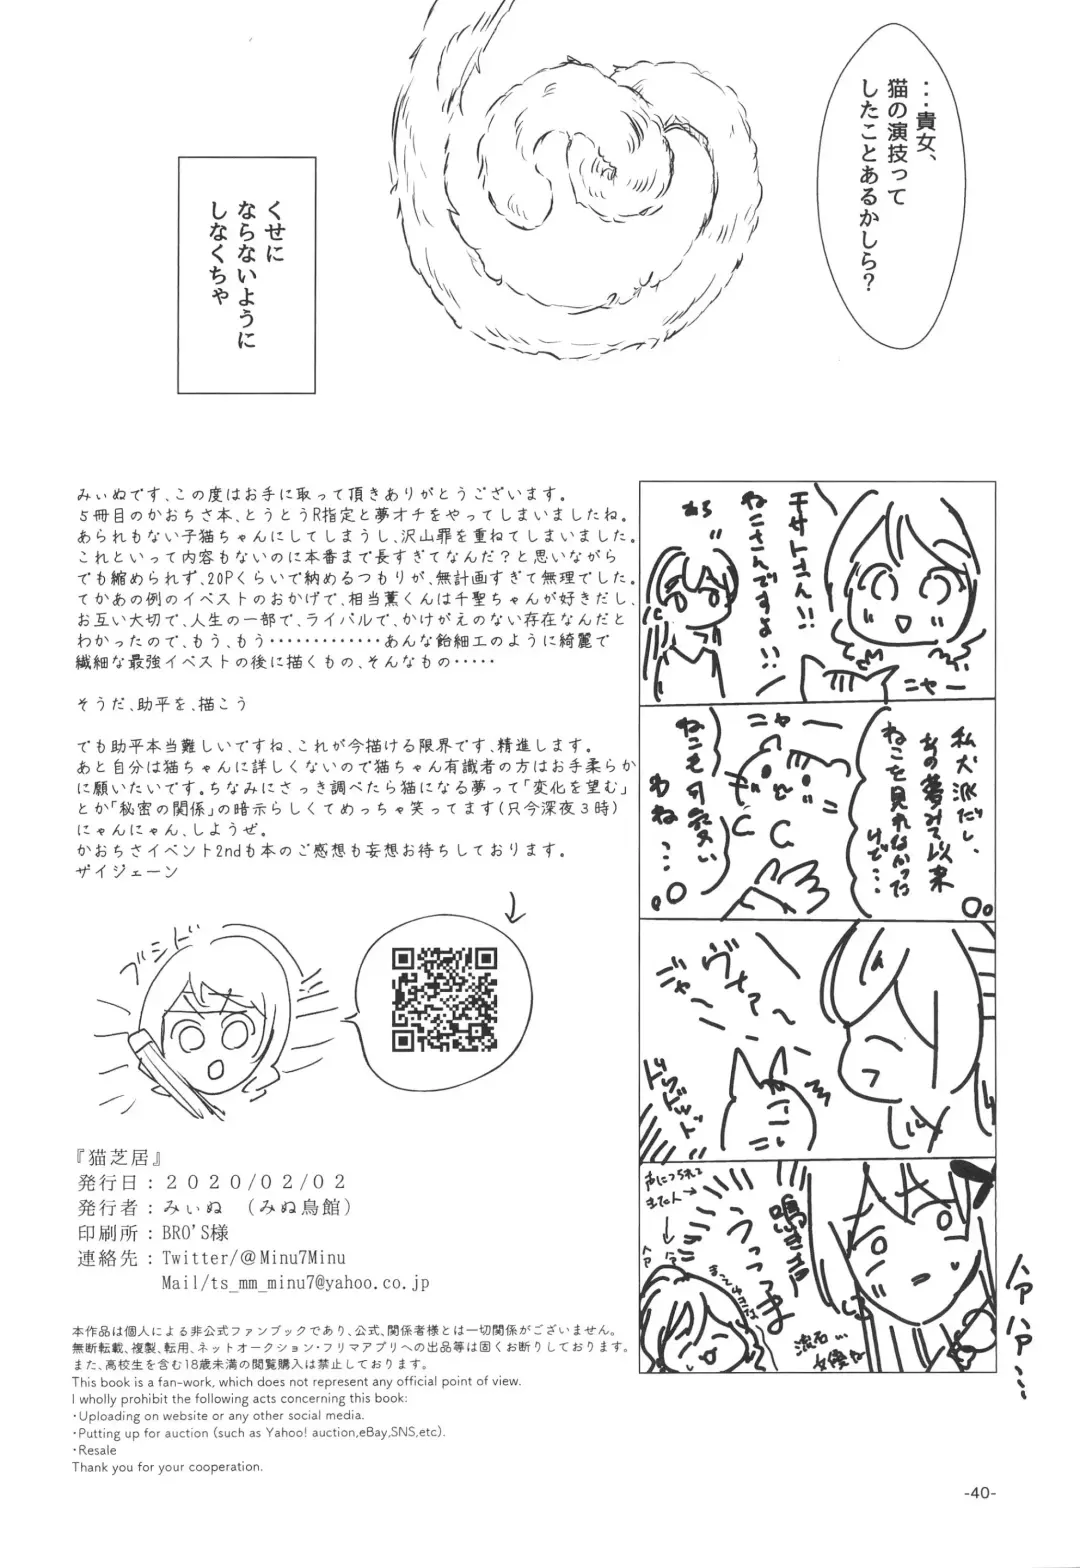 …貴女、
猫の演技って
したことあるかしら？
くせに
ならないように
しなくちゃ
みぃぬです、この度はお手に取って頂きありがとうございます。
５冊目のかおちさ本、とうとうR指定と夢オチをやってしまいましたね。
あられもない子猫ちゃんにしてしまうし、沢山罪を重ねてしまいました。
これといって内容もないのに本番まで長すぎてなんだ？と思いながら
でも縮められず、20Pくらいで納めるつもりが、無計画すぎて無理でした。
てかあの例のイベストのおかげで、相当薫くんは千聖ちゃんが好きだし、
お互い大切で、人生の一部で、ライバルで、かけがえのない存在なんだと
わかったので、もう、もう・・・・・・・・・・・・・あんな飴細工のように綺麗で
繊細な最強イベストの後に描くもの、そんなもの・・・・・
そうだ、助平を、描こう
でも助平本当難しいですね、これが今描ける限界です、精進します。
あと自分は猫ちゃんに詳しくないので猫ちゃん有識者の方はお手柔らか
に願いたいです。ちなみにさっき調べたら猫になる夢って「変化を望む」
とか「秘密の関係」の暗示らしくてめっちゃ笑ってます(只今深夜３時)
にゃんにゃん、しようぜ。
かおちさイベント2ndも本のご感想も妄想お待ちしております。
ザイジェーン
ブシドー
千サトさん!!
ねこさんですよ!!
あら
ニャー
私犬派だし、
あの夢みて以来
ねこを見れなかった
けど…
ニャー
ねこも可愛い
わね…
ヴナァ〜
ジャ〜
ドッドッドッ
声につられて
きた人→
鳴き声
うっっっま
流石…
女優ね
ハァハァ…
『猫芝居』
発行日：２０２０/０２/０２
発行者：みぃぬ　(みぬ鳥館)
印刷所：BRO'S様
連絡先：Twitter/@Minu7Minu
Mail/ts_mm_minu7@yahoo.co.jp
本作品は個人による非公式ファンブックであり、公式、関係者様とは一切関係がございません。
無断転載、複製、転用、ネットオークション・フリマアプリへの出品等は固くお断りしております。
また、高校生を含む18歳未満の閲覧購入は禁止しております。
This book is a fan-work, which does not represent any official point of view.
I wholly prohibit the following acts concerning this book:
・Uploading on website or any other social media.
・Putting up for auction (such as Yahoo! auction,eBay,SNS,etc).
・Resale
Thank you for your cooperation.
-40-